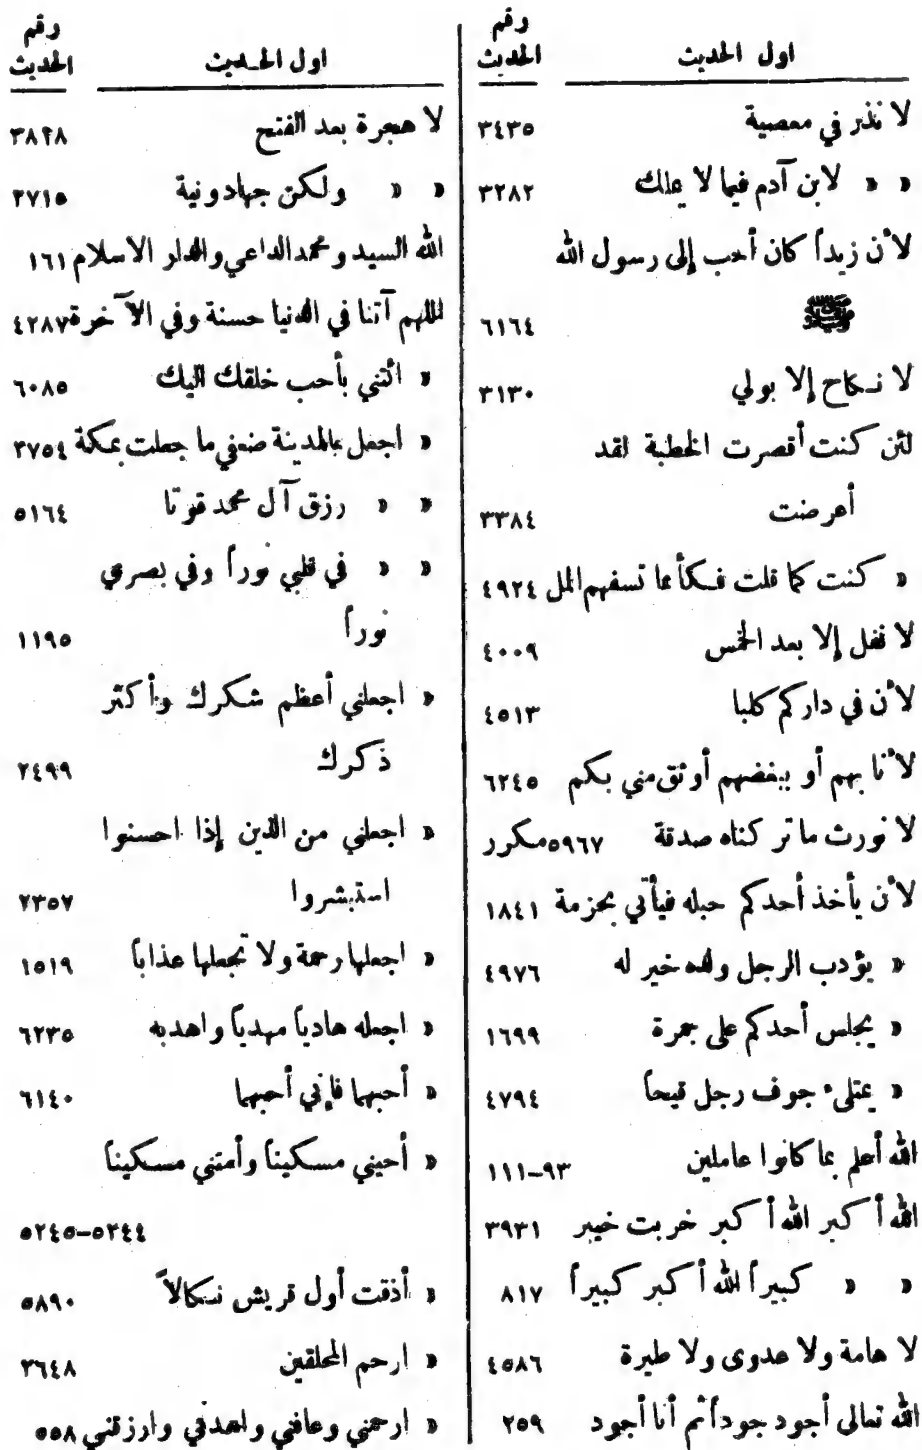 اول الحديث رقم الحديث
لا نذر في معصية ٣٤٣٥
« « لابن آدم فيما لا يملك ٣٢٨٢
لأن زيداً كان أحب إلى رسول الله
ﷺ ٦١٦٤
لا نكاح إلا بولي ٣١٣٠
لئن كنت أقصرت الخطبة لقد
أعرضت ٣٣٨٤
« كنت كما قلت فكأنما تسفهم المل ٤٩٢٤
لا نفل إلا بعد الخمس ٤٠٠٩
لأن في داركم كلبا ٤٥١٣
لأنا بهم أو ببعضهم أوثق مني بكم ٦٢٤٥
لا نورث ما تركناه صدقة ٥٩٦٧ مكرر
لأن يأخذ أحدكم حبله فيأتي بحزمة ١٨٤١
« يؤدب الرجل ولده خير له ٤٩٧٦
« يجلس أحدكم على جمرة ١٦٩٩
« يمتلىء جوف رجل قيحاً ٤٧٩٤
الله أعلم بما كانوا عاملين ٩٣-١١١
الله أكبر الله أكبر خربت خيبر ٣٩٣١
« « كبيراً الله أكبر كبيراً ٨١٧
لا هامة ولا عدوى ولا طيرة ٤٥٨٦
الله تعالى أجود جوداً ثم أنا أجود ٢٥٩
اول الحديث رقم الحديث
لا هجرة بعد الفتح ٣٨٢٨
« « ولكن جهاد ونية ٢٧١٥
الله السيد ومحمد الداعي والدار الاسلام ١٦١
اللهم آتنا في الدنيا حسنة وفي الآخرة ٤٢٨٧
« ائتني بأحب خلقك اليك ٦٠٨٥
« اجعل بالمدينة ضعفي ما جعلت بمكة ٢٧٥٤
« « رزق آل محمد قوتا ٥١٦٤
« « في قلبي نوراً وفي بصري
نوراً ١١٩٥
« اجعلني أعظم شكرك وأكثر
ذكرك ٢٤٩٩
« اجعلني من الذين إذا احسنوا
استبشروا ٢٣٥٧
« اجعلها رحمة ولا تجعلها عذاباً ١٥١٩
« اجعله هادياً مهدياً واهد به ٦٢٣٥
« أحبهما فإني أحبهما ٦١٤٠
« أحيني مسكيناً وأمتني مسكيناً
٥٢٤٤-٥٢٤٥
« أذقت أول قريش نكالاً ٥٨٩٠
« ارحم المحلقين ٢٦٤٨
« ارحمني وعافني واهدني وارزقني ٥٥٨